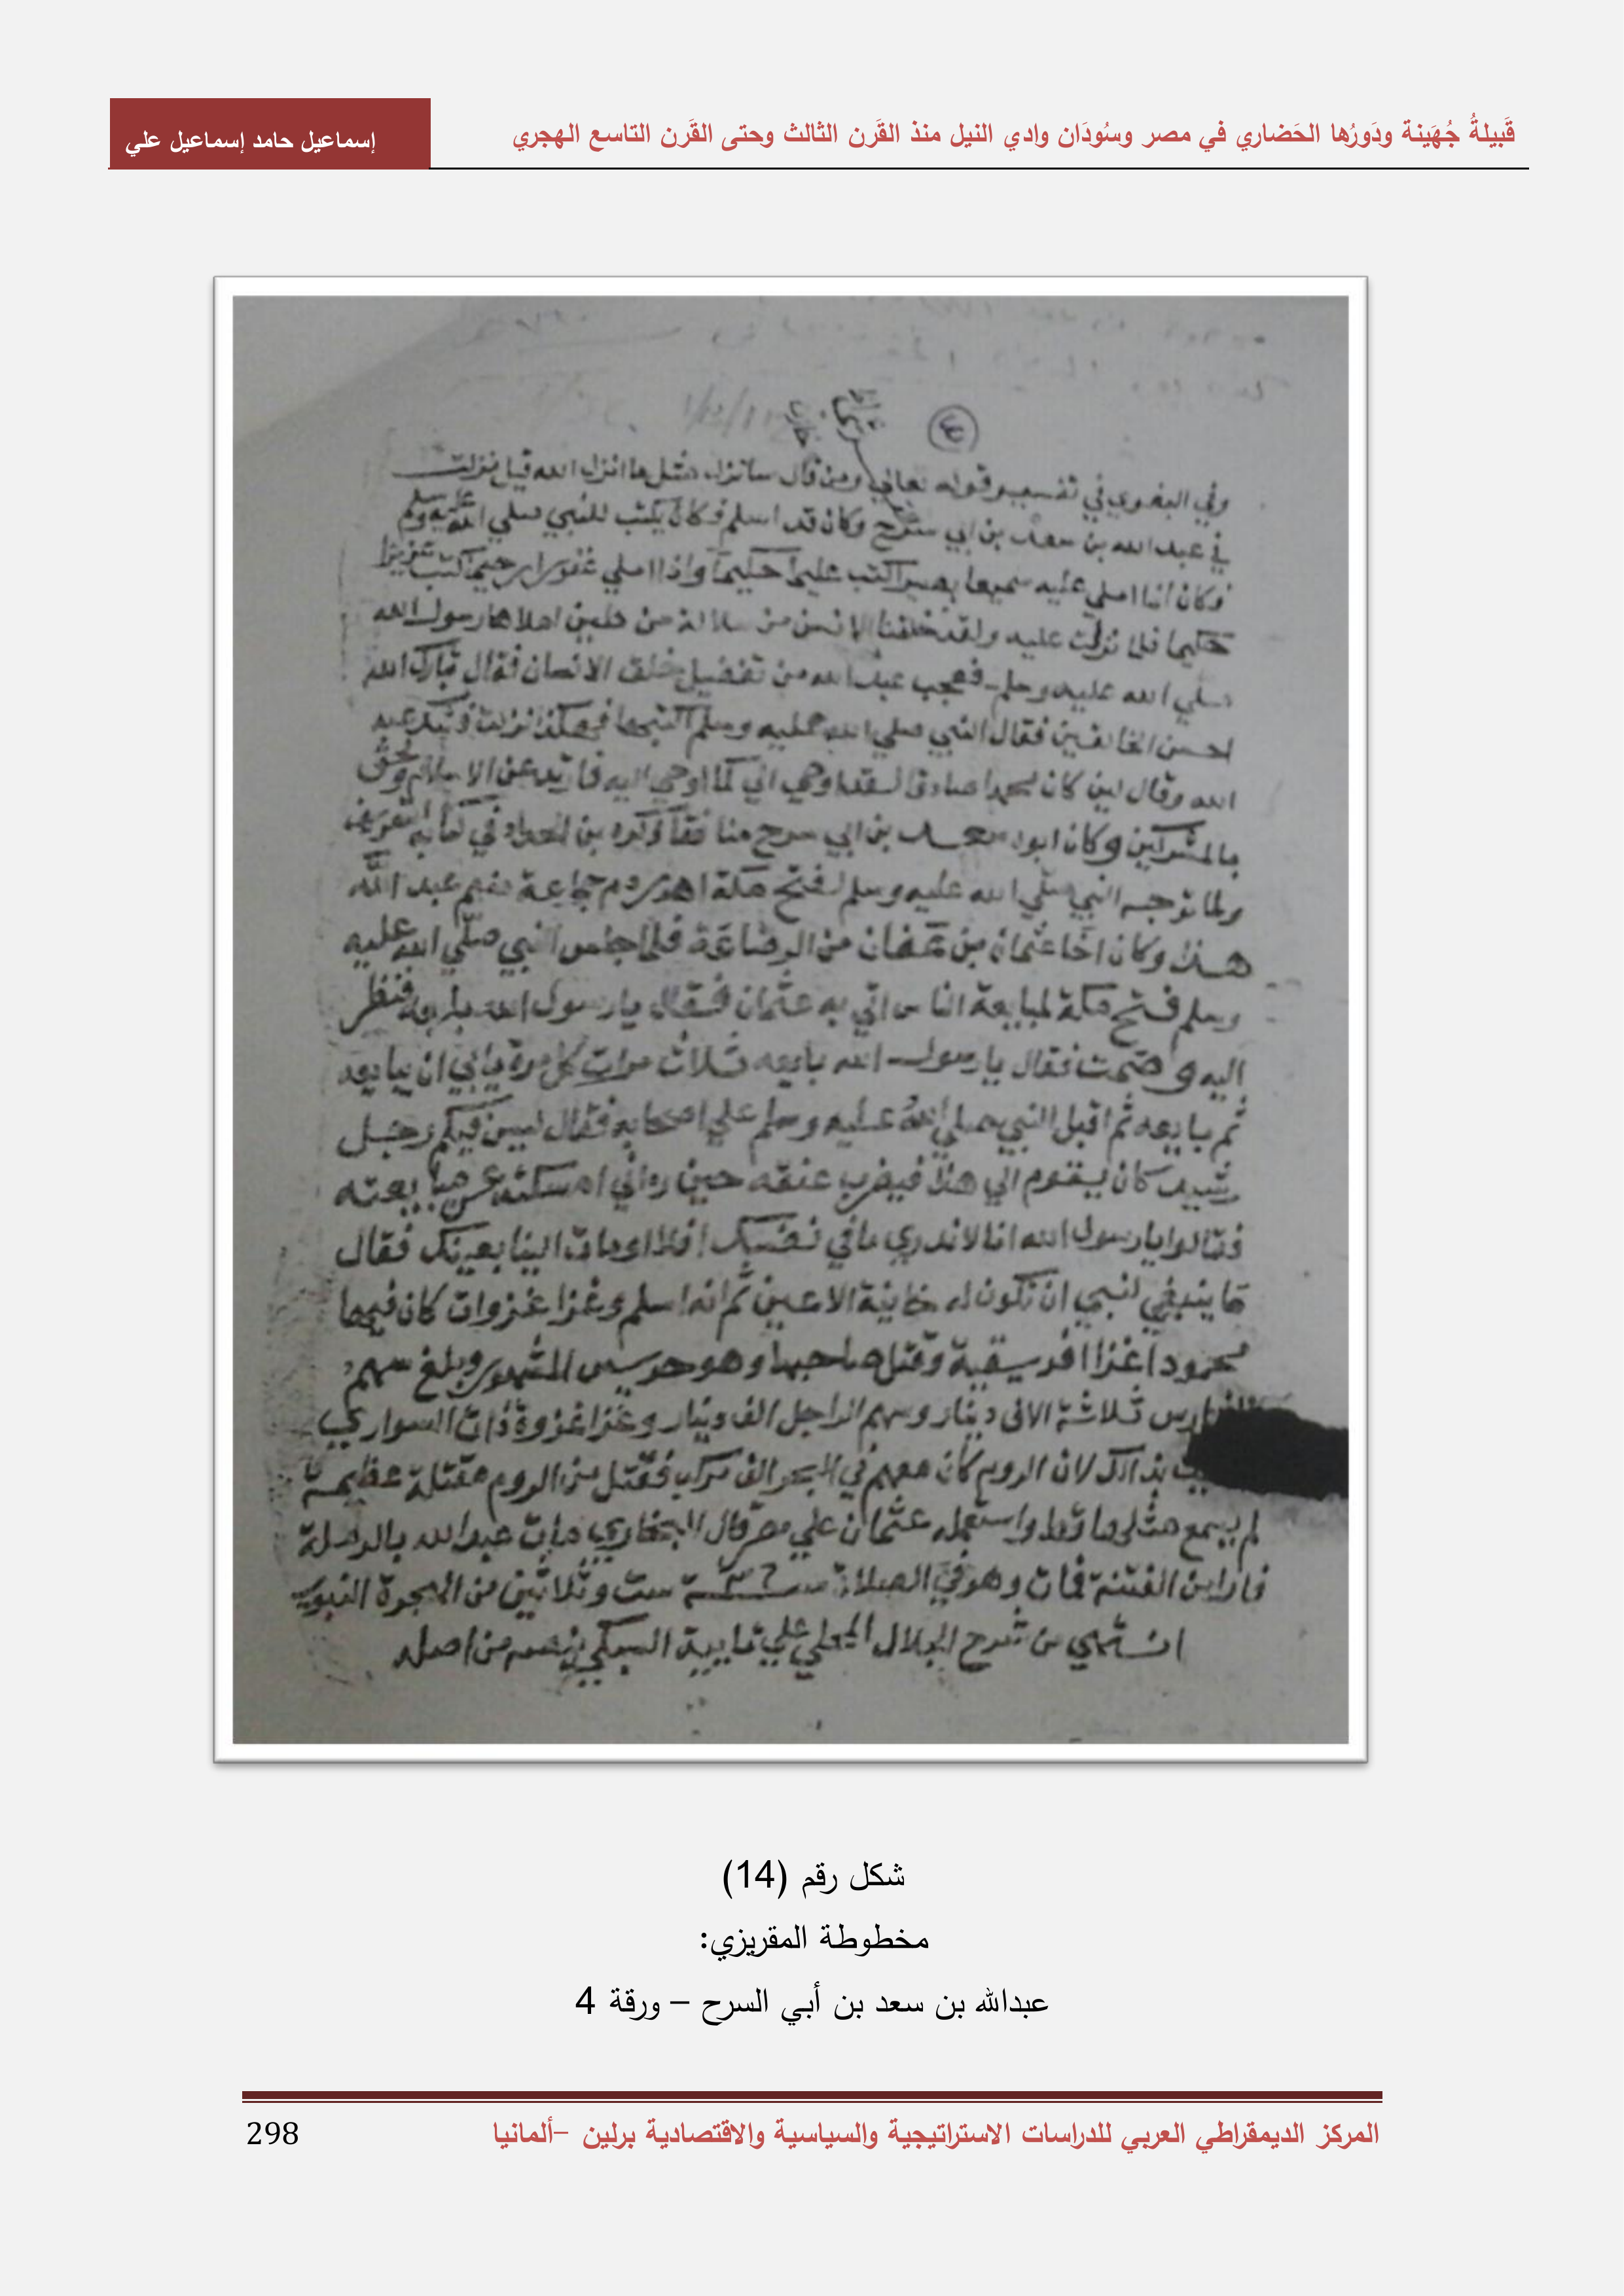 قَبيلةُ جُهَينة ودَورُها الحَضاري في مصر وسُودَان وادي النيل منذ القَرن الثالث وحتى القَرن التاسع الهجري
إسماعيل حامد إسماعيل علي
وفي البغوي في تفسير قوله تعالي ومن قال سانزل مثل ما انزل الله قيل نزلت
في عبد الله بن سعد بن ابي سرح وكان قد اسلم وكان يكتب للنبي صلي الله عليه وسلم
فكان اذا املي عليه سميعا بصيرا كتب عليما حكيما واذا املي غفورا رحيما كتب عزيزا
حكيما فلما نزلت عليه ولقد خلقنا الانسن من سلالة من طين املاها رسول الله
صلي الله عليه وسلم فعجب عبد الله من تفضيل خلق الانسان فقال تبارك الله
احسن الخالقين فقال النبي صلي الله عليه وسلم اكتبها فهكذا نزلت فشك عبد
الله وقال لين كان محمدا صادقا لقد اوحي الي كما اوحي اليه فارتد عن الاسلام ولحق
بالمشركين وكان ابوه سعد بن ابي سرح منافقا ذكره بن الحداد في كتابه التعريف
ولما توجه النبي صلي الله عليه وسلم لفتح مكة اهدر دم جماعة منهم عبد الله
هذا وكان اخا عثمان بن عفان من الرضاعة فلما جلس النبي صلي الله عليه
وسلم فتح مكة لمبايعة الناس اتي به عثمان فقال يا رسول الله بايعه فنظر
اليه وصمت فقال يا رسول الله بايعه ثلاث مرات كل مرة يابي ان يبايعه
ثم بايعه ثم اقبل النبي صلي الله عليه وسلم علي اصحابه فقال ليس فيكم رجل
رشيد كان يقوم الي هذا فيضرب عنقه حين راني امسكت عن مبايعته
فقالوا يا رسول الله انا لا ندري ما في نفسك افلا اومات الينا بعينك فقال
ما ينبغي لنبي ان تكون له خاينة الاعين ثم انه اسلم وغزا غزوات كان فيها
محمودا غزا افريقية وقتل صاحبها وهو جرجيس المشهور وبلغ سهم
الفارس ثلاثة الاف دينار وسهم الراجل الف دينار وغزا غزوة ذات السواري
بذالك لان الروم كان معهم في البحر الف مركب فقتل من الروم مقتلة عظيمة
لم يسمع مثلها قط واستعمله عثمان علي مصر قال البخاري مات عبد الله بالرملة
فارا من الفتنة فمات وهو في الصلاة سنة ٣٦ ست وثلاثين من الهجرة النبوية
انتهي من شرح الجلال المحلي علي تايية السبكي بنصه من اصله
شكل رقم (14)
مخطوطة المقريزي:
عبدالله بن سعد بن أبي السرح – ورقة 4
المركز الديمقراطي العربي للدراسات الاستراتيجية والسياسية والاقتصادية برلين –ألمانيا
298